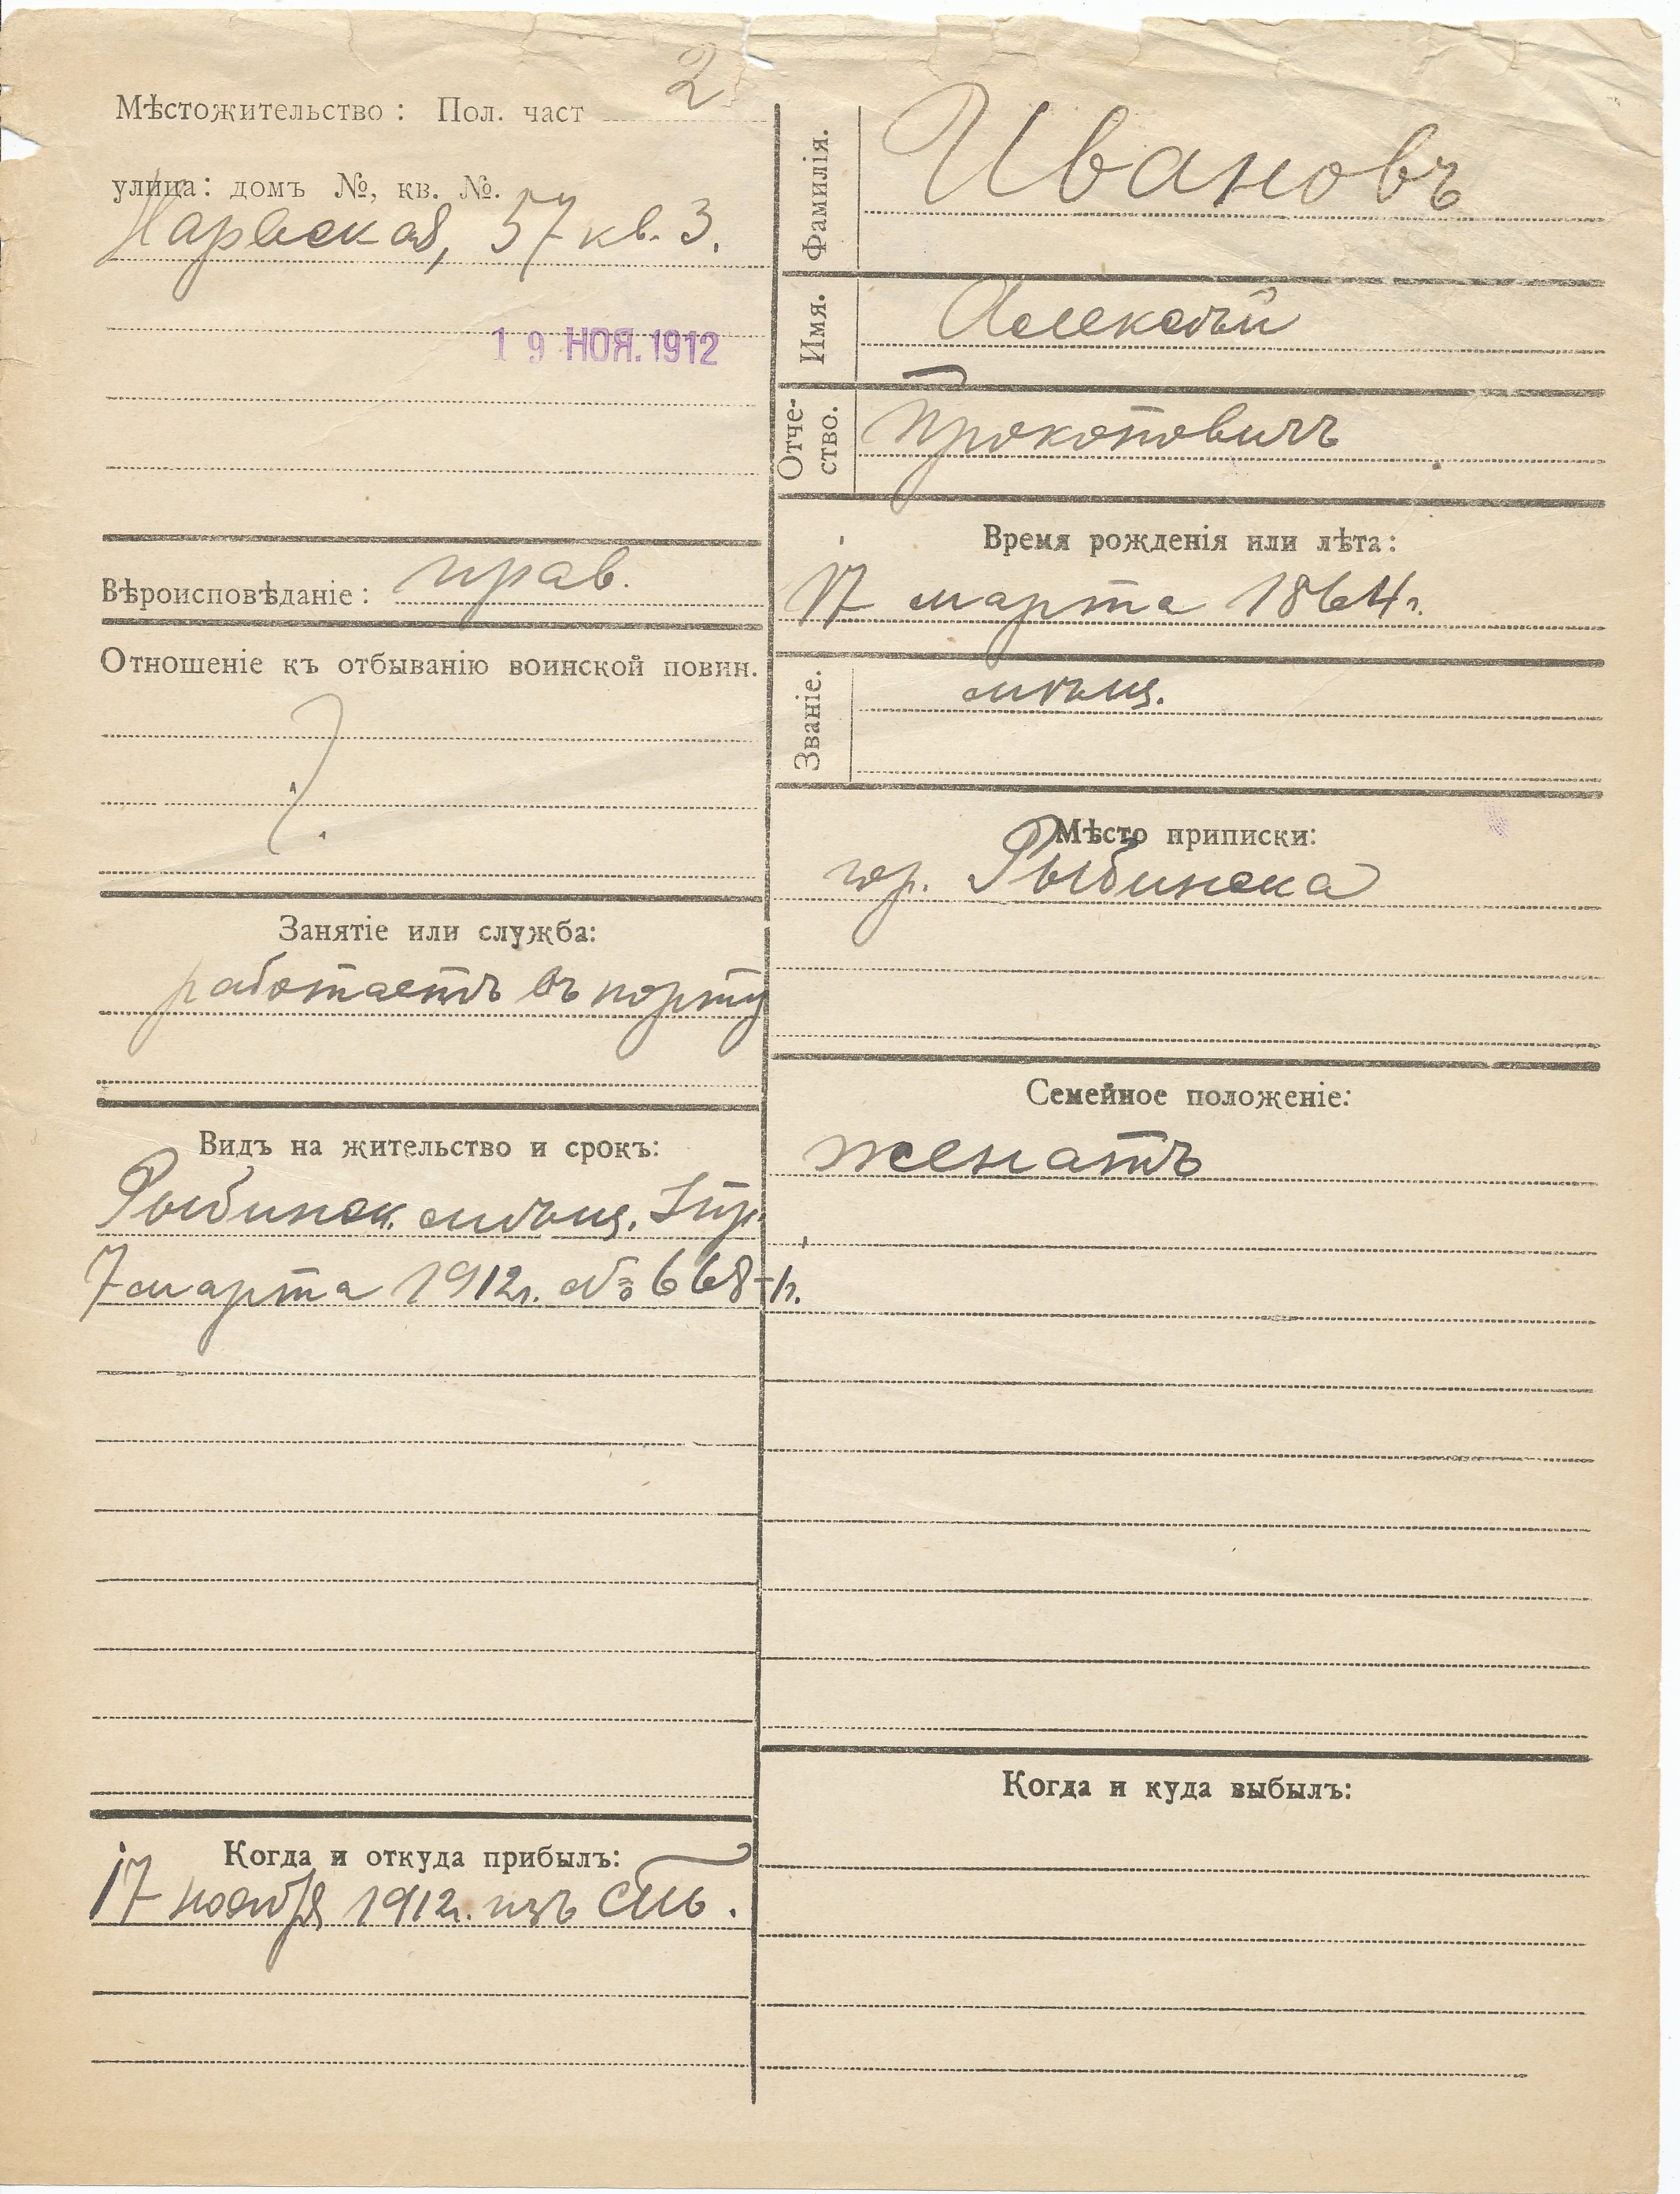 Мѣстожительство: Пол. част 2
улица: домъ №, кв. №.
Нарвская, 57 кв. 3.
19 НОЯ. 1912
Вѣроисповѣданіе: прав.
Отношеніе къ отбыванію воинской повин.
?
Занятіе или служба:
работаетъ въ порту
Видъ на жительство и срокъ:
Рыбинск. мѣщ. Упр.
7 марта 1912г. № 668
Когда и откуда прибылъ:
17 ноября 1912г. изъ СПБ.
Фамилія. Ивановъ
Имя. Алексѣй
Отче-
ство. Прокоповичъ
Время рожденія или лѣта:
17 марта 1864 г.
Званіе. мѣщ.
Мѣсто приписки:
гор. Рыбинска
Семейное положеніе:
женатъ
Когда и куда выбылъ: